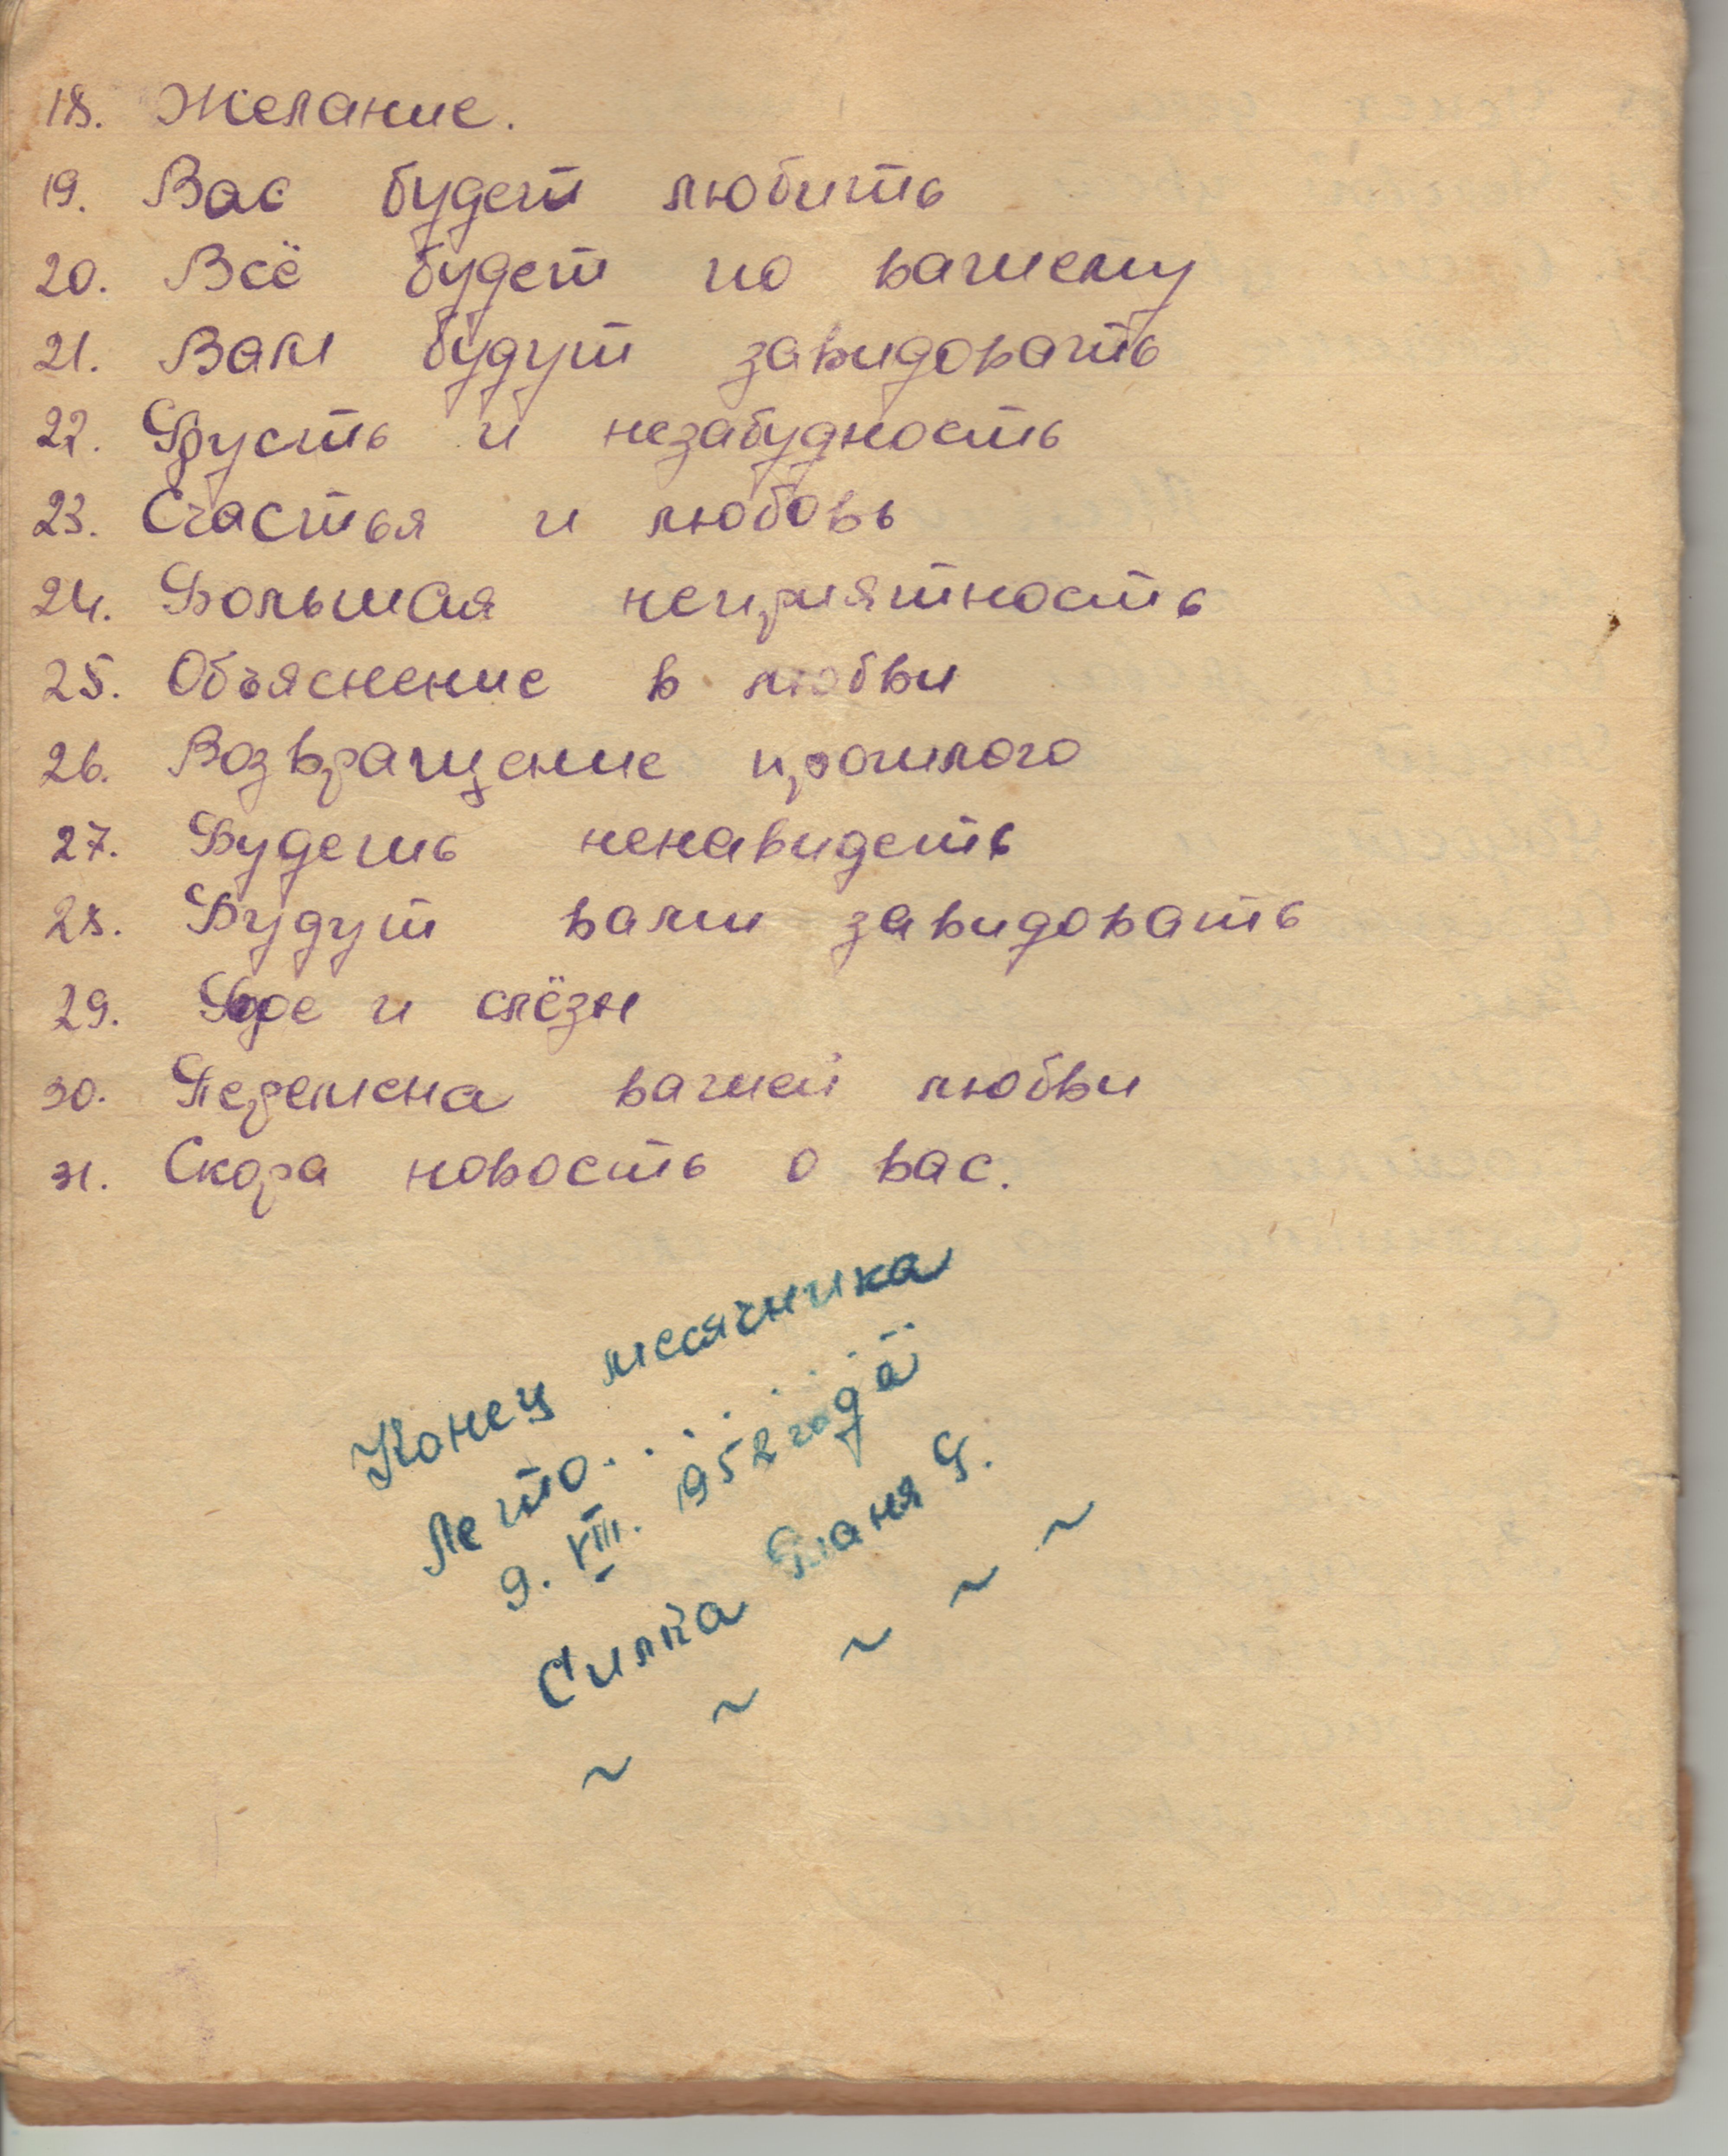 18. Желание.
19. Вас будет любить
20. Всё будет по вашему
21. Вам будут завидовать
22. Грусть и незабудность
23. Счастья и любовь
24. Большая неприятность
25. Объяснение в любви
26. Возвращение прошлого
27. Будешь ненавидеть
28. Будут вами завидовать
29. Горе и слёзы
30. Перемена вашей любви
31. Скора новость о вас.
Конец месячника
Лето.........
9. VIII. 1952 года
Силка Таня